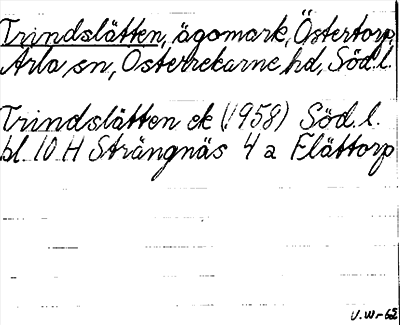 Trindslätten, ägomark, Östertorp,
Ärla sn, Österrekarne hd, Söd.l.
Trindslätten ek (1958) Söd. l.
bl. 10 H Strängnäs 4 a Elättorp
V.W-62